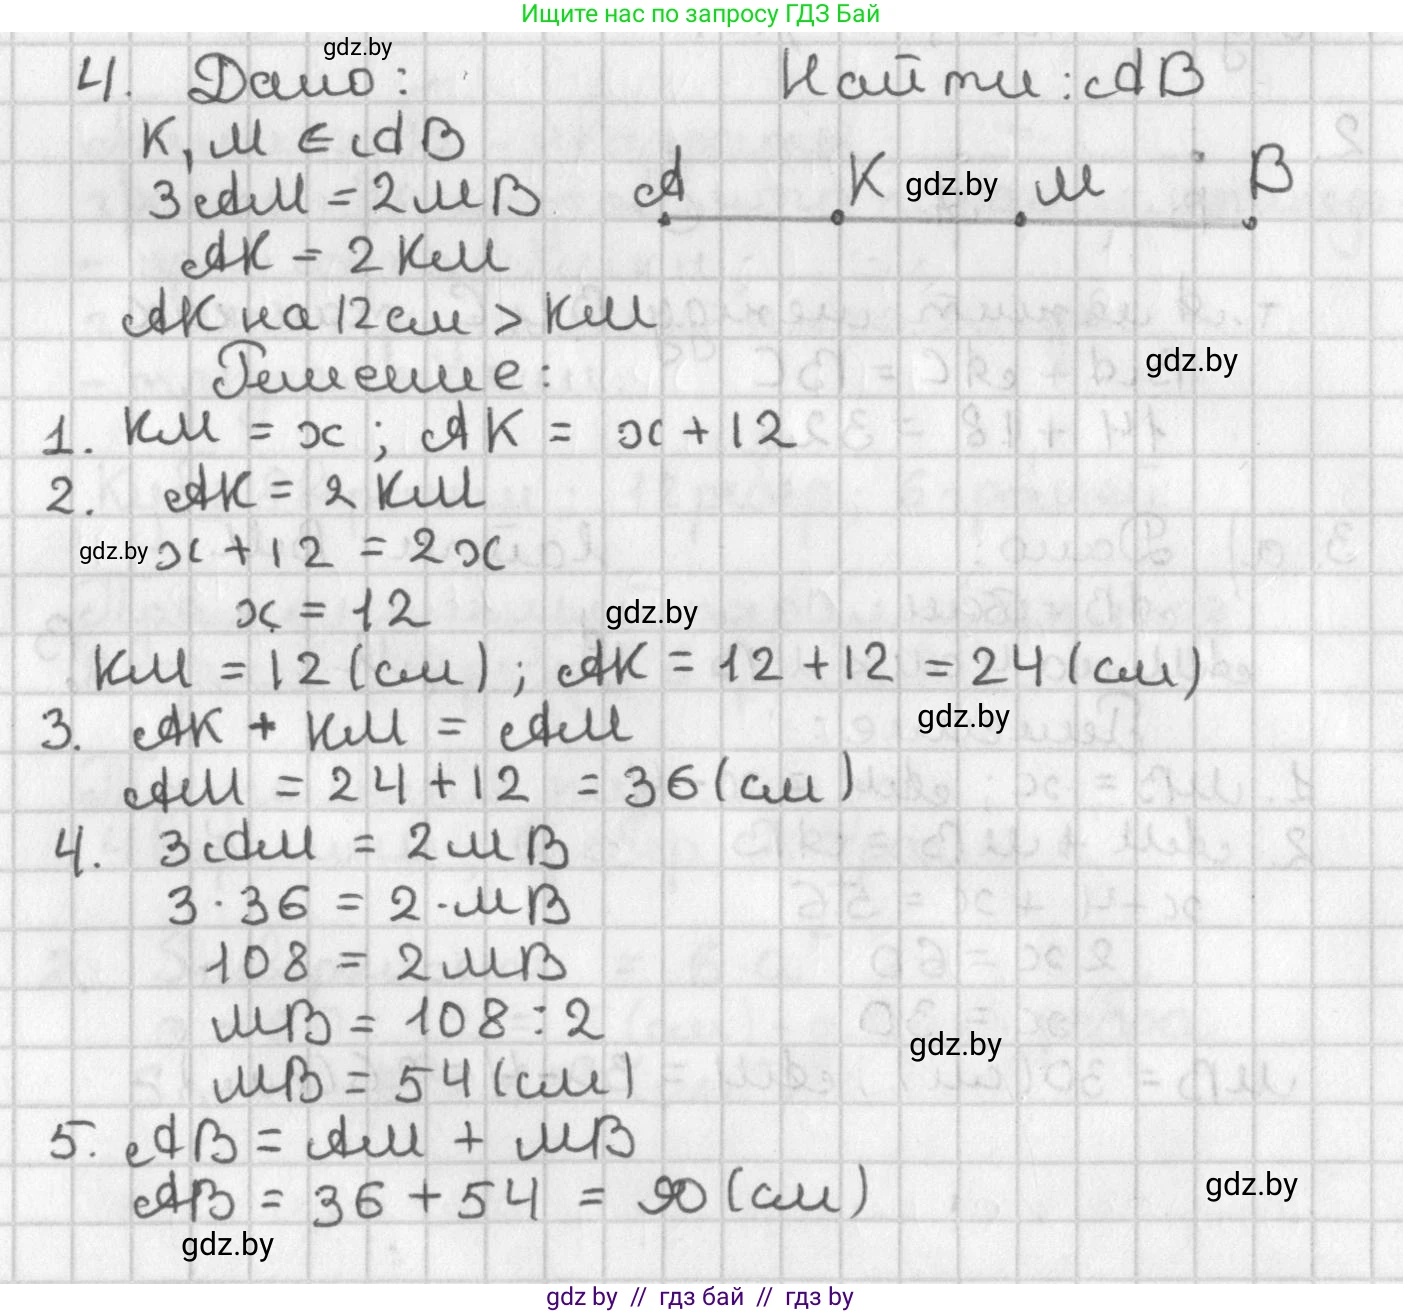 Ищите нас по запросу ГДЗ Бай
gdz.by
4. Дано: Найти: AB
K, M ∈ AB
3AM = 2MB A K gdz.by M B
AK = 2KM
AK на 12 см > KM
gdz.by
Решение:
1. KM = x; AK = x + 12
2. AK = 2KM
gdz.by x + 12 = 2x
x = 12 gdz.by
KM = 12 (см); AK = 12 + 12 = 24 (см)
3. AK + KM = AM gdz.by
AM = 24 + 12 = 36 (см)
4. 3AM = 2MB
3 · 36 = 2 · MB
108 = 2MB
MB = 108 : 2
gdz.by
MB = 54 (см)
5. AB = AM + MB
AB = 36 + 54 = 90 (см) gdz.by
gdz.by
gdz by // гдз бай // гдз by